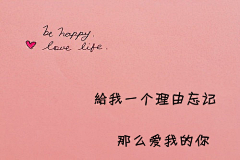 be happy.
love life.
給我一个理由忘记
那么爱我的你